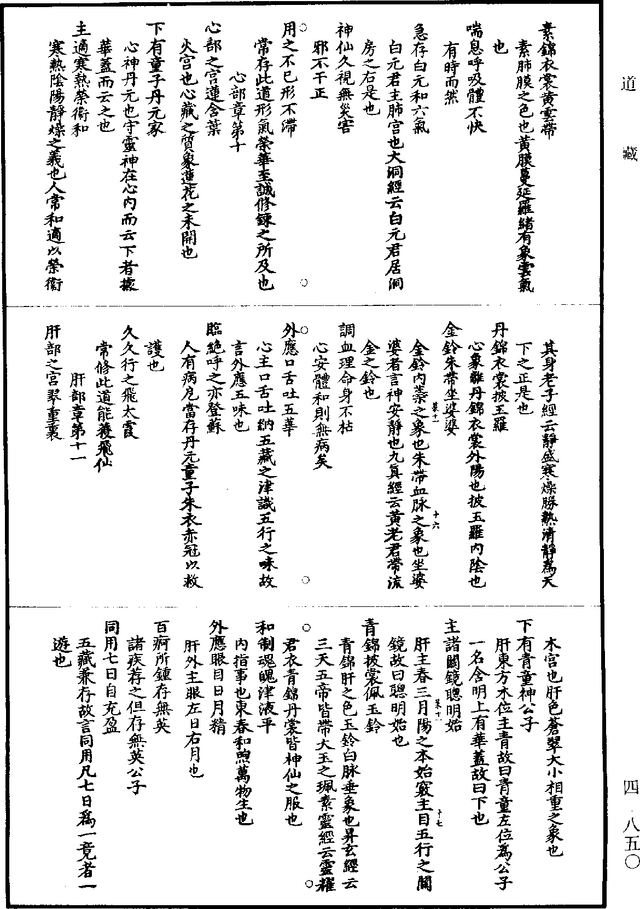 道藏
素錦衣裳黃雲帶
素肺膜之色也黃膜蔓延羅緒有象雲氣
也
喘息呼吸體不快
有時而然
急存白元和六氣
白元君主肺宮也大洞經云白元君居洞
房之右是也
神仙久視無災害
邪不干正
用之不已形不滯
常存此道形氣榮華至誠修鍊之所及也
心部章第十
心部之宮蓮含葉
火宮也心藏之質象蓮花之未開也
下有童子丹元家
心神丹元也守靈神在心內而云下者據
華蓋而云之也
主適寒熱榮衛和
寒熱陰陽靜燥之義也人常和適以榮衛
其身老子經云靜盛寒燥勝熱清靜為天
下之正是也
丹錦衣裳披玉羅
心象離丹錦衣裳外陽也披玉羅內陰也
金鈴朱帶坐婆婆
金鈴內蘂之象也朱帶血脉之象也坐婆
婆者言神安靜也九真經云黃老君帶流
金之鈴也
調血理命身不枯
心安體和則無病矣
外應口舌吐五華
心主口舌吐納五藏之津識五行之味故
言外應五味也
臨絕呼之亦登蘇
人有病危當存丹元童子朱衣赤冠以救
護也
久久行之飛太霞
常修此道能獲飛仙
肝部章第十一
肝部之宮翠重裏
木宮也肝色蒼翠大小相重之象也
下有青童神公子
肝東方木位主青故曰青童左位為公子
一名含明上有華蓋故曰下也
主諸關鏡聰明始
肝主春三月陽之本始竅主目五行之關
鏡故曰聰明始也
青錦披裳佩玉鈴
青錦肝之色玉鈴白脉垂象也昇玄經云
三天五帝皆帶大玉之珮素靈經云靈耀
君衣青錦丹裳皆神仙之服也
和制魂魄津液平
內指事也東春和煦萬物生也
外應眼目日月精
肝外主眼左日右月也
百痾所鍾存無英
諸疾存之但存無英公子
同用七日自充盈
五藏兼存故言同用凡七日為一竟者一
遊也
四 八五〇